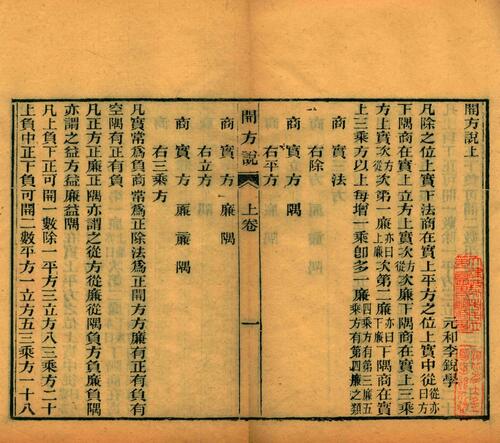 開方說上
元和李銳學
凡除之位上實下法商在實上平方之位上實中方亦曰從
下隅商在實上立方上實次方次廉下隅商在實上三乘
方上實次方次第一廉亦曰上廉次第二廉亦曰下廉下隅商在實
上三乘方以上每增一乘卽多一廉四乘方有第三廉五乘方有第四廉之類
商 實 法
右除
商 實 方 隅
右平方
開方說 上卷 一
商 實 方 廉 隅
右立方
商 實 方 廉 廉 隅
右三乘方
凡實常爲負商常爲正除法爲正開方方廉有正有負有
空隅有正有負
凡正方正廉正隅亦謂之從方從廉從隅負方負廉負隅
亦謂之益方益廉益隅
凡上負下正可開一數除一平方三立方八三乘方二十
上負中正下負可開二數平方一立方五三乘方一十八